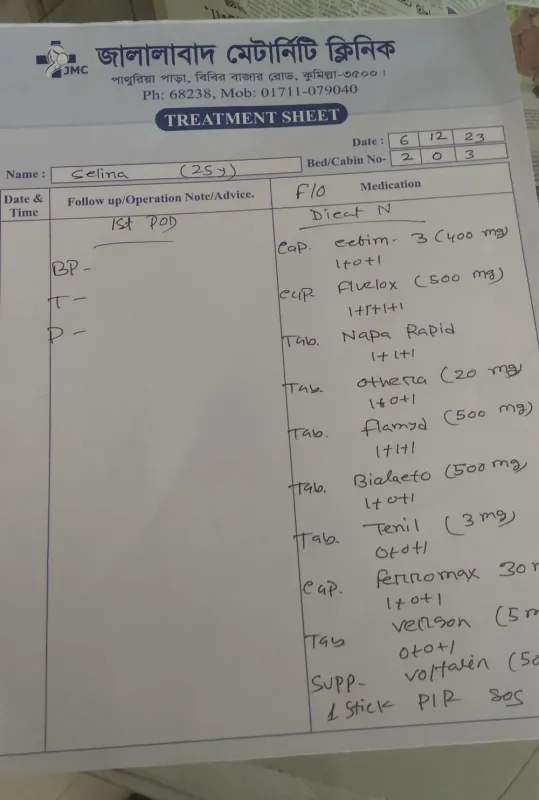 JMC
জালালাবাদ মেটার্নিটি ক্লিনিক
পাথুরিয়া পাড়া, বিবির বাজার রোড, কুমিল্লা-৩৫০০।
Ph: 68238, Mob: 01711-079040
TREATMENT SHEET
Date : 6 12 23
Name : Selina (25y)
Bed/Cabin No- 2 0 3
Date & Time
Follow up/Operation Note/Advice.
F/O Medication
1st POD
BP -
T -
P -
Dieat N
Cap. cebim- 3 (400 mg)
1+0+1
Cap. Fluelox (500 mg)
1+1+1+1
Tab. Napa Rapid
1+1+1
Tab. (20 mg)
1+0+1
Tab. flamyd (500 mg)
1+1+1
Tab. (500 mg
1+0+1
Tab. Tenil (3 mg)
0+0+1
Cap. ferromax 30
1+0+1
Tab (5
0+0+1
Supp- voltalin (50
1 Stick P/R SOS